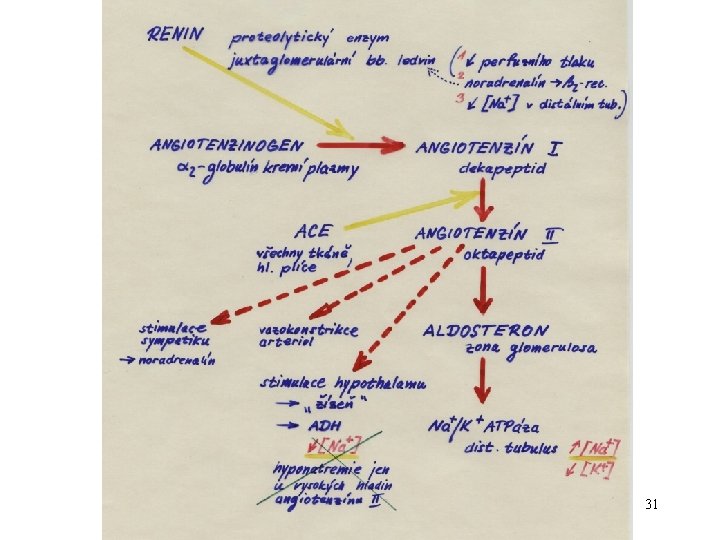 RENIN proteolytický enzym
juxtaglomerulární bb. ledvin
(1 ↙ perfuzního tlaku
2 noradrenalín → β2-rec.
3 ↙ [Na+] v distálním tub.)
ANGIOTENZINOGEN
α2-globulín krevní plasmy
ANGIOTENZÍN I
dekapeptid
ACE
všechny tkáně,
hl. plíce
ANGIOTENZÍN II
oktapeptid
stimulace
sympatiku
→ noradrenalín
vazokonstrikce
arteriol
ALDOSTERON
zona glomerulosa
stimulace hypothalamu
→ „žízeň“
→ ADH
↙[Na+]
hyponatremie jen
u vysokých hladin
angiotenzínu II
Na+/K+ ATPáza
dist. tubulus ↑[Na+]
↙[K+]
31